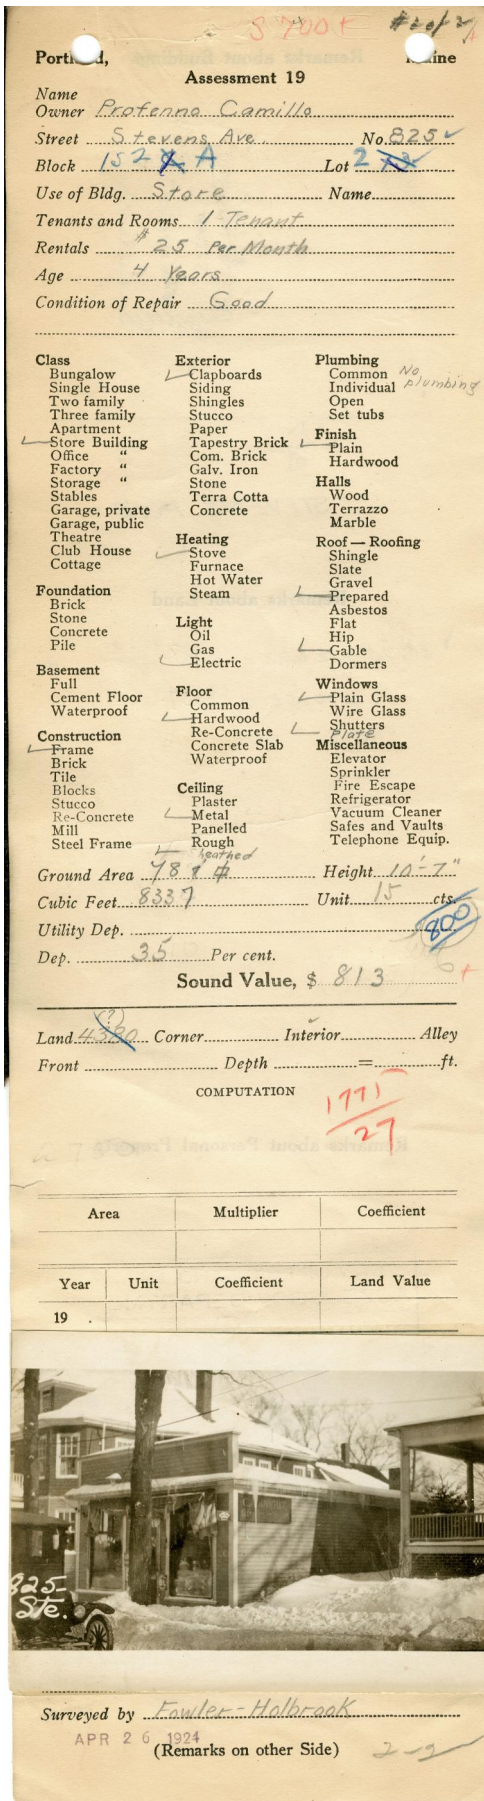 S 700+
#2 of 2
Portland, Maine
Assessment 19
Name
Owner Profenno Camillo
Street Stevens Ave. No. 825
Block 152 A Lot 2
Use of Bldg. Store Name
Tenants and Rooms 1 Tenant
Rentals $25 Per Month
Age 4 Years
Condition of Repair Good
Class
Bungalow
Single House
Two family
Three family
Apartment
Store Building
Office "
Factory "
Storage "
Stables
Garage, private
Garage, public
Theatre
Club House
Cottage
Foundation
Brick
Stone
Concrete
Pile
Basement
Full
Cement Floor
Waterproof
Construction
Frame
Brick
Tile
Blocks
Stucco
Re-Concrete
Mill
Steel Frame
Exterior
Clapboards
Siding
Shingles
Stucco
Paper
Tapestry Brick
Com. Brick
Galv. Iron
Stone
Terra Cotta
Concrete
Heating
Stove
Furnace
Hot Water
Steam
Light
Oil
Gas
Electric
Floor
Common
Hardwood
Re-Concrete
Concrete Slab
Waterproof
Ceiling
Plaster
Metal
Panelled
Rough
Sheathed
Plumbing
Common No
Individual plumbing
Open
Set tubs
Finish
Plain
Hardwood
Halls
Wood
Terrazzo
Marble
Roof — Roofing
Shingle
Slate
Gravel
Prepared
Asbestos
Flat
Hip
Gable
Dormers
Windows
Plain Glass
Wire Glass
Shutters
Plate
Miscellaneous
Elevator
Sprinkler
Fire Escape
Refrigerator
Vacuum Cleaner
Safes and Vaults
Telephone Equip.
Ground Area 787 Height 10'-7"
Cubic Feet 8337 Unit 15 cts.
800
Utility Dep.
Dep. 35 Per cent.
Sound Value, $ 813
(?)
Land 4380 Corner Interior Alley
Front Depth = ft.
COMPUTATION
1771
27
Area Multiplier Coefficient
Year Unit Coefficient Land Value
19 .
825-
Ste.
Surveyed by Fowler-Holbrook
APR 26 1924
(Remarks on other Side)
2-2